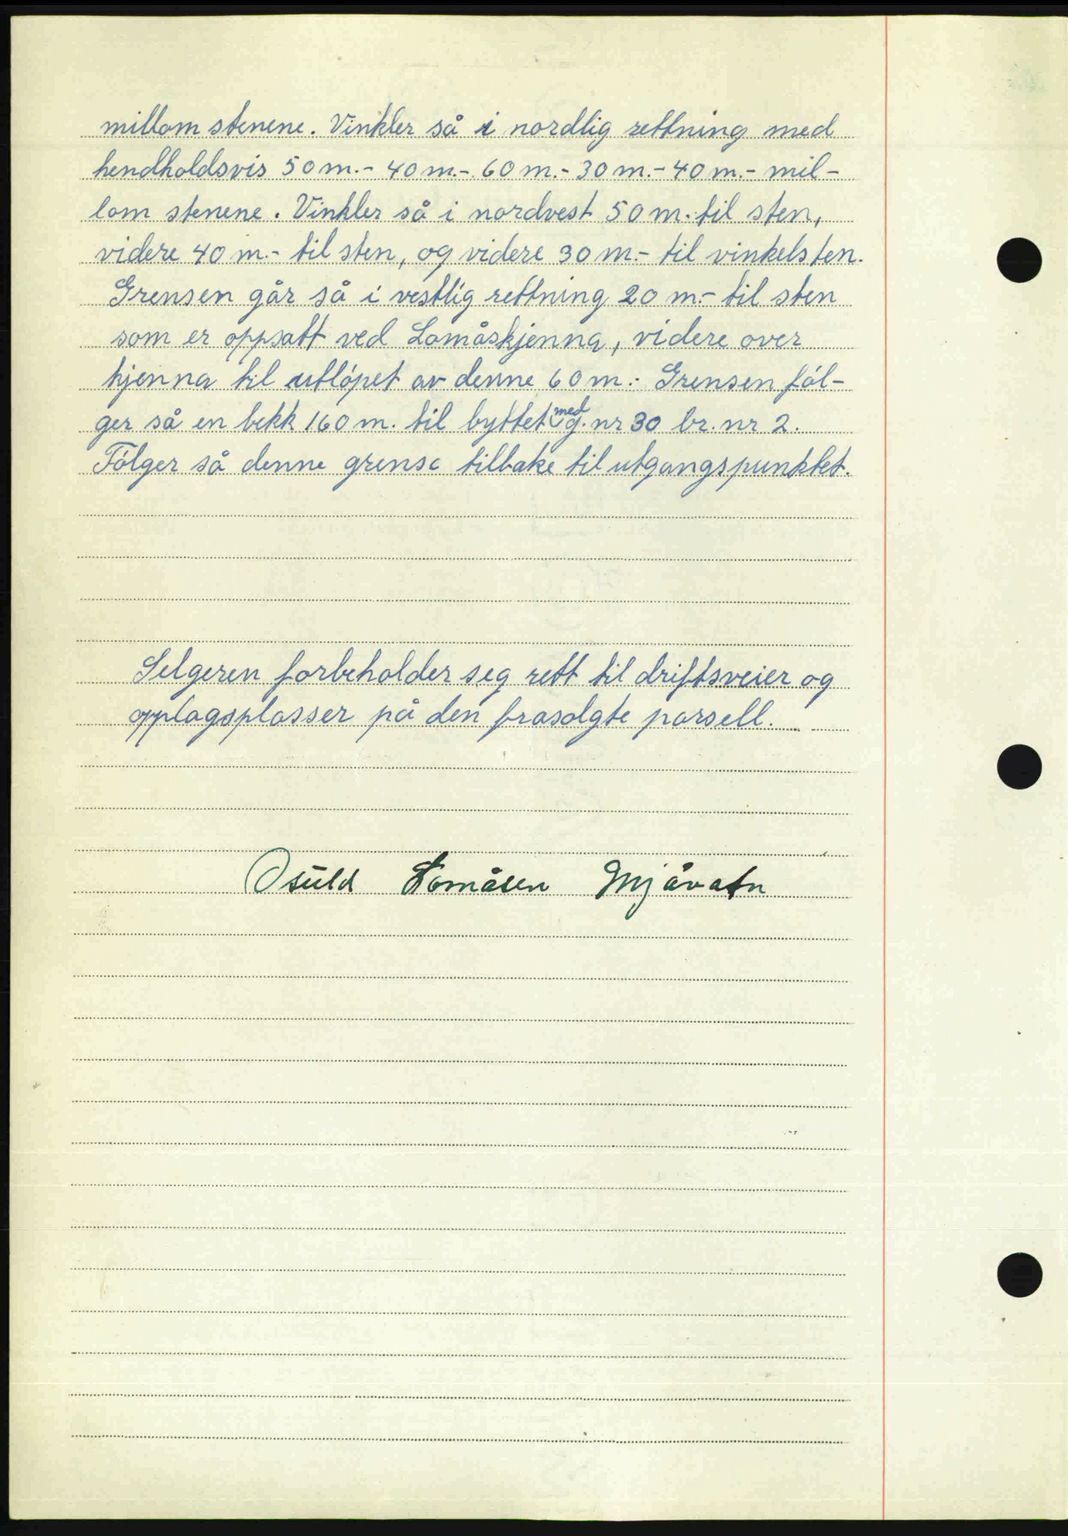 millom stenene. Vinkler så i nordlig rettning med
hendholdsvis 50 m.- 40 m.- 60 m.- 30 m.- 40 m.- mil-
lom stenene. Vinkler så i nordvest 50 m. til sten,
videre 40 m.- til sten, og videre 30 m.- til vinkelsten.
Grensen går så i vestlig rettning 20 m.- til sten
som er oppsatt ved Lomåskjenna, videre over
kjenna til utløpet av denne 60 m.- Grensen føl-
ger så en bekk 160 m. til byttet med g. nr 30 br. nr 2.
Følger så denne grense tilbake til utgangspunktet.
Selgeren forbeholder seg rett til driftsveier og
opplagsplasser på den frasolgte parsell.
Osuld Lomåsen Mjåvatn